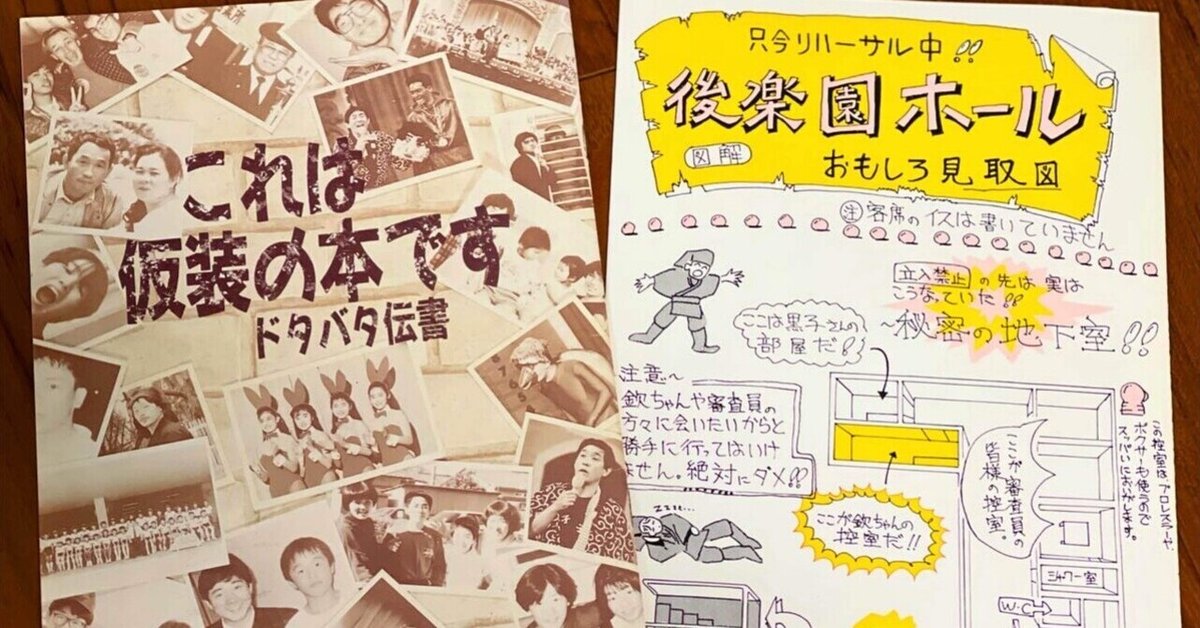 これは
仮装の本です
ドタバタ伝書
只今リハーサル中!!
後楽園ホール
図解
おもしろ見取図
注 客席のイスは書いていません
立入禁止の先は実は
こうなっていた!!
~秘密の地下室!!
ここは黒子さんの
部屋だ!!
注意~
欽ちゃんや審査員の
方々に会いたいからと
勝手に行ってはいけ
ません。絶対にダメ!!
ここが欽ちゃんの
控室だ!!
ここが審査員の
皆様の控室。
この控室は、プロレスラーや
ボクサーも使うので
スッパイにおいがします。
ZZZZ...
シャワー室
W・C